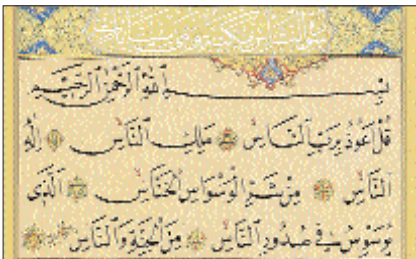 بسم الله الرحمن الرحيم
قل أعوذ برب الناس ملك الناس إله
الناس من شر الوسواس الخناس الذى
يوسوس فى صدور الناس من الجنة والناس